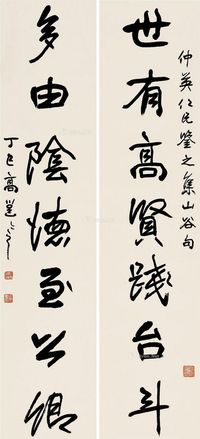 仲英仁兄鑒之集山谷句
世有高賢踐台斗
多由陰德至公卿
丁巳高邕